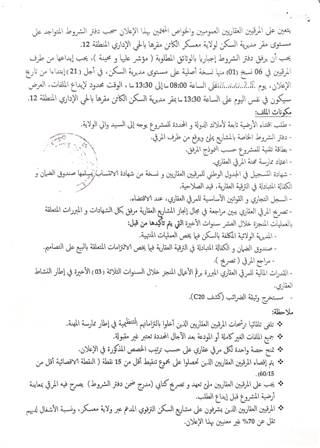 يتعين على المرقين العقاريين العموميين والخواص المهتمين بهذا الإعلان سحب دفتر الشروط المتواجد على
مستوى مقر مديرية السكن لولاية معسكر الكائن مقرها بالحي الإداري المنطقة 12.
يجب أن يرفق دفتر الشروط إجباريا بالوثائق المطلوبة (مؤشر عليها و محينة)، يجب إيداعها من طرف
المرقيين في 06 نسخ (01) منها نسخة أصلية على مستوى مديرية السكن، في أجل (21) إبتداءا من تاريخ
الإعلان، يوم ............ على الساعة 08:00 إلى 13:30 سا، الوقت المحدود لإيداع الملفات، العرض
سيكون في نفس اليوم على الساعة 13:30 سا بمقر مديرية السكن الكائن مقرها بالحي الإداري المنطقة 12.
مكونات الملف:
- طلب اقتناء الأرضية تابعة لأملاك الدولة و المحددة للمشروع يوجه إلى السيد والي الولاية.
- دفتر الشروط الخاصة بالمشاريع يملئ ويوقع من طرف المرقي.
- بطاقة تقنية للمشروع حسب النموذج المرفق.
- اعتماد ممارسة مهنة المرقي العقاري.
- شهادة التسجيل في الجدول الوطني للمرقيين العقاريين و نسخة من شهادة الانتساب يسلمها صندوق الضمان و
الكفالة المتبادلة في الترقية العقارية، قيد الصلاحية.
- السجل التجاري و القوانين الأساسية للمرقي العقاري، عند الاقتضاء.
- تصريح المرقي العقاري يبين مراجعه في مجال إنجاز المشاريع العقارية مرفق بكل الشهادات و المبررات المتعلقة
بالعمليات المنجزة خلال العشر سنوات الأخيرة التي يتم تأكيدها من قبل:
- المديرية الولائية المكلفة بالسكن فيما يخص العمليات المنتهية.
- صندوق الضمان و الكفالة المتبادلة في الترقية العقارية فيما يخص الالتزامات المتعلقة بالبيع على التصاميم.
- مراجع المرقي (تصريح).
- القدرات المالية للمرقي العقاري المبررة برقم الأعمال المنجز خلال السنوات الثلاثة (03) الأخيرة في إطار النشاط
العقاري.
- مستخرج وثيقة الضرائب (كشف C20).
ملاحظة:
تلغى تلقائيا ترشحات المرقيين العقاريين الذين أخلوا بالتزاماتهم التنظيمية في إطار ممارسة المهنة.
جميع الملفات الغير كاملة أو المودعة بعد الآجال المحددة تعتبر غير مقبولة.
تمنح حصة واحدة لكل مرقي عقاري على حسب ترتيب الحصص المذكورة في الإعلان.
يتم إقصاء المرقيين العقاريين الذين تحصلوا على مجموع تنقيط أقل من 15 نقطة (النقطة الاقصائية أقل من
60/15.
يجب على المرقيين العقاريين ملئ تعهد و تصريح كتابي (مدرج ضمن دفتر الشروط) يصرح فيه المرقي بمعاينة
أرضية المشروع قبل إيداع الطلب.
المرقيين العقاريين الذين يشرفون على مشاريع السكن الترقوي المدعم عبر ولاية معسكر، ونسبة الأشغال لديهم
تقل عن 70% غير معنيين بهذا الإعلان.